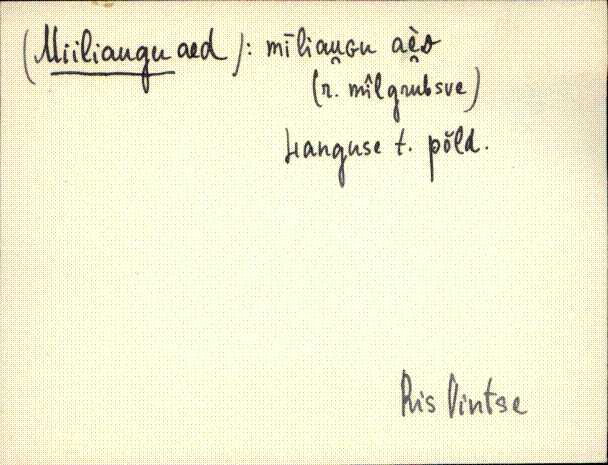 (Miiliaugu aed): mīliau̯ɢu aè̯D
(r. mîlgrubsve)
Hanguse t. põld.
Ris Pintse